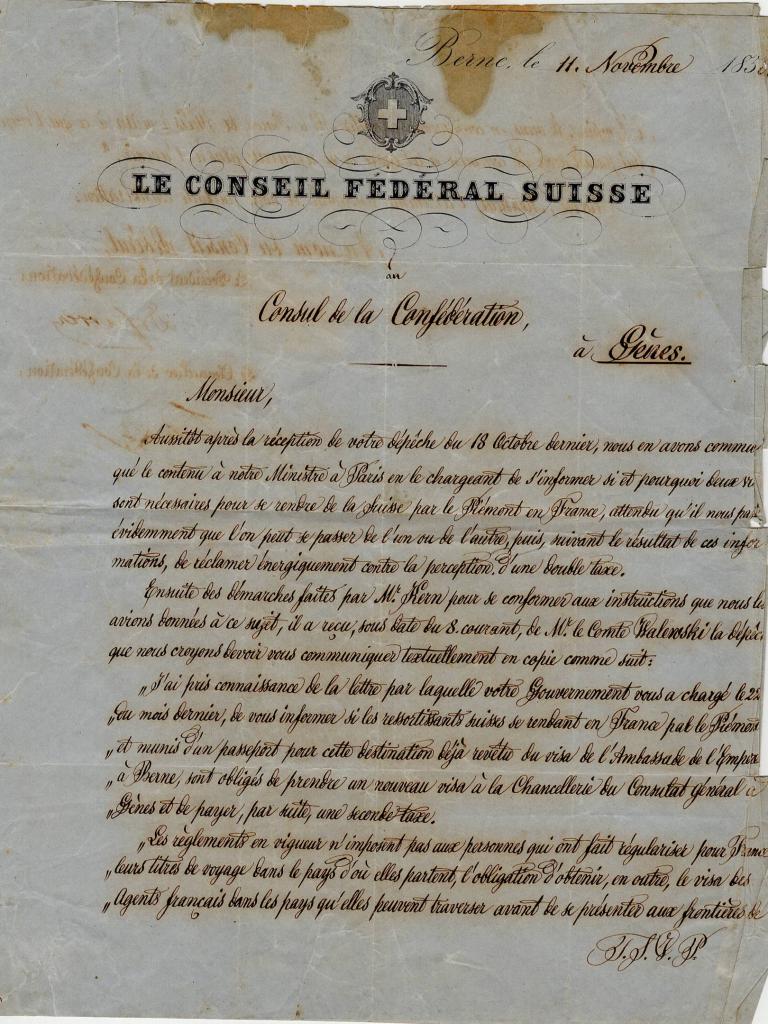 Berne, le 11. Novembre 185
LE CONSEIL FÉDÉRAL SUISSE
au
Consul de la Confédération,
à Gênes.
Monsieur,
Aussitôt après la réception de votre dépêche du 18 Octobre dernier, nous en avons commu
qué le contenu à notre Ministre à Paris en le chargeant de s'informer si et pourquoi deux vi
sont nécessaires pour se rendre de la Suisse par le Piémont en France, attendu qu'il nous pa
évidemment que l'on peut se passer de l'un ou de l'autre, puis, suivant le résultat de ces infor
mations, de réclamer énergiquement contre la perception d'une double taxe.
Ensuite des démarches faites par Mr. Kern pour se conformer aux instructions que nous l
avions données à ce sujet, il a reçu, sous date du 8. courant, de Mr. le Comte Walewski la dépêc
que nous croyons devoir vous communiquer textuellement en copie comme suit:
„J'ai pris connaissance de la lettre par laquelle votre Gouvernement vous a chargé le 22
„du mois dernier, de vous informer si les ressortissants suisses se rendant en France par le Piémont
„et munis d'un passeport pour cette destination déjà revêtu du visa de l'Ambassade de l'Emper
„à Berne, sont obligés de prendre un nouveau visa à la Chancellerie du Consulat général
„Gênes et de payer, par suite, une seconde taxe.
„Les règlements en vigueur n'imposent pas aux personnes qui ont fait régulariser pour France
„leurs titres de voyage dans le pays d'où elles partent, l'obligation d'obtenir, en outre, le visa des
„Agents français dans les pays qu'elles peuvent traverser avant de se présenter aux frontières de
T.S.V.P.